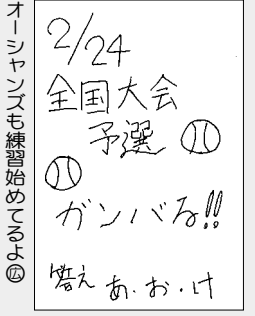 オーシャンズも練習始めてるよ㊭
2/24
全国大会
予選
ガンバる!!
答え あ・お・け